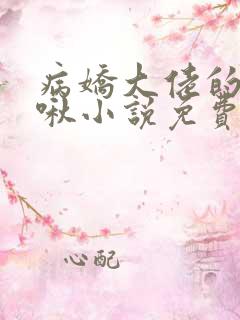 病嬌大佬的
啾小說免費
心配